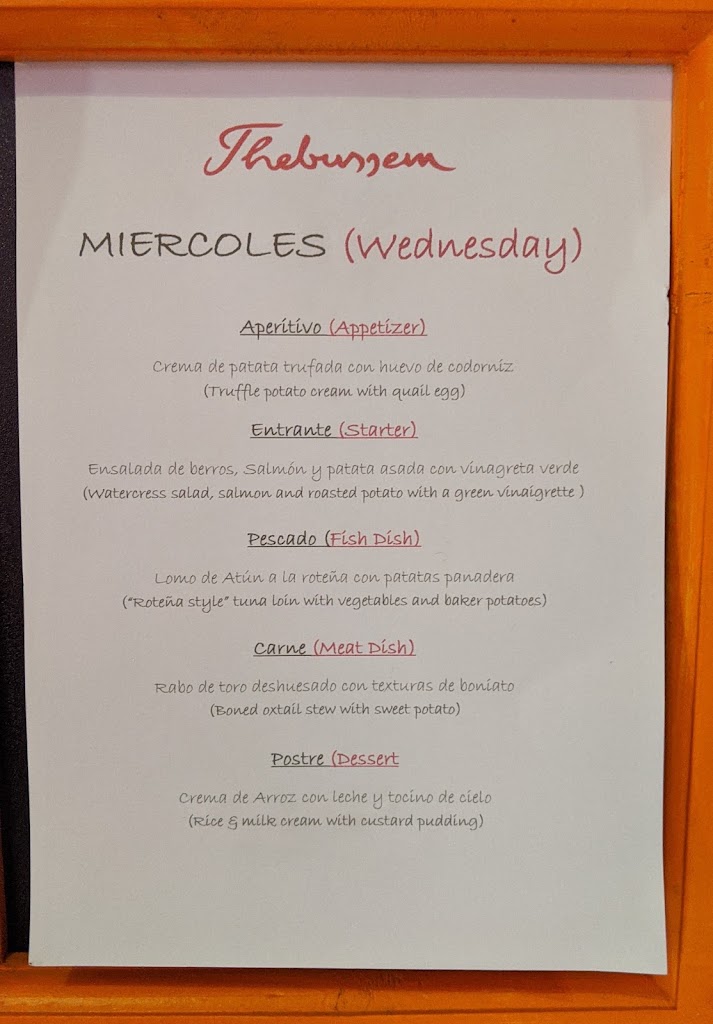 Thebussem
MIERCOLES (Wednesday)
Aperitivo (Appetizer)
Crema de patata trufada con huevo de codorniz
(Truffle potato cream with quail egg)
Entrante (Starter)
Ensalada de berros, Salmón y patata asada con vinagreta verde
(Watercress salad, salmon and roasted potato with a green vinaigrette )
Pescado (Fish Dish)
Lomo de Atún a la roteña con patatas panadera
("Roteña style" tuna loin with vegetables and baker potatoes)
Carne (Meat Dish)
Rabo de toro deshuesado con texturas de boniato
(Boned oxtail stew with sweet potato)
Postre (Dessert
Crema de Arroz con leche y tocino de cielo
(Rice & milk cream with custard pudding)